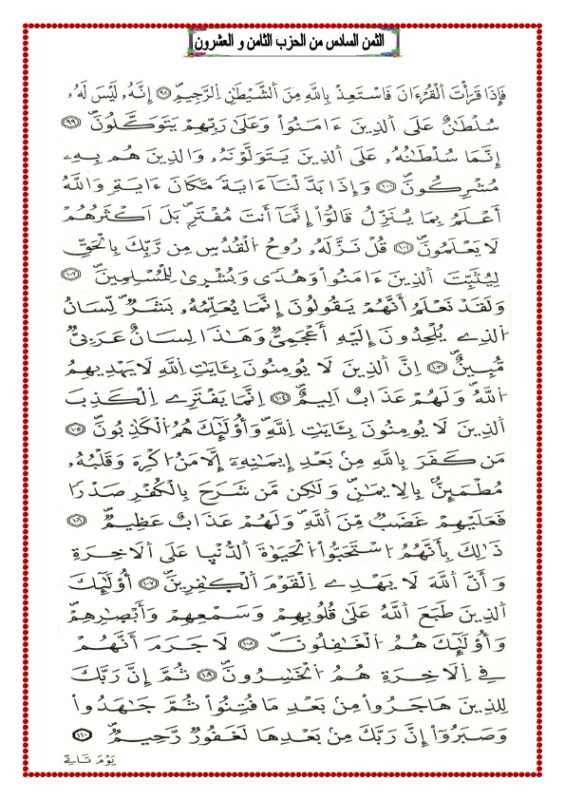 الثمن السادس من الحزب الثامن و العشرون
فَإِذَا قَرَأْتَ اَلْقُرْءَانَ فَاسْتَعِذْ بِاللَّهِ مِنَ اَلشَّيْطَٰنِ اِلرَّجِيمِۖ ٩٨ إِنَّهُۥ لَيْسَ لَهُۥ
سُلْطَٰنٌ عَلَى اَلذِينَ ءَامَنُواْ وَعَلَىٰ رَبِّهِمْ يَتَوَكَّلُونَۖ ٩٩
إِنَّمَا سُلْطَٰنُهُۥ عَلَى اَلذِينَ يَتَوَلَّوْنَهُۥ وَالذِينَ هُم بِهِۦ
مُشْرِكُونَۖ ١٠٠ وَإِذَا بَدَّلْنَا ءَايَةً مَّكَانَ ءَايَةٖ وَاللَّهُ
أَعْلَمُ بِمَا يُنَزِّلُ قَالُوٓاْ إِنَّمَا أَنتَ مُفْتَرِۢ بَلَ اَكْثَرُهُمْ
لَا يَعْلَمُونَۖ ١٠١ قُلْ نَزَّلَهُۥ رُوحُ اُلْقُدُسِ مِن رَّبِّكَ بِالْحَقِّ
لِيُثَبِّتَ اَلذِينَ ءَامَنُواْ وَهُدىٗ وَبُشْر۪ىٰ لِلْمُسْلِمِينَۖ ١٠٢
وَلَقَدْ نَعْلَمُ أَنَّهُمْ يَقُولُونَ إِنَّمَا يُعَلِّمُهُۥ بَشَرٞۖ لِّسَانُ
اُلذِے يُلْحِدُونَ إِلَيْهِ أَعْجَمِيّٞ وَهَٰذَا لِسَانٌ عَرَبِيّٞ
مُّبِينٌۖ ١٠٣ اِنَّ اَلذِينَ لَا يُومِنُونَ بِـَٔايَٰتِ اِللَّهِ لَا يَهْدِيهِمُ
اُللَّهُۖ وَلَهُمْ عَذَابٌ اَلِيمٌۖ ١٠٤ اِنَّمَا يَفْتَرِے اِلْكَذِبَ
اَلذِينَ لَا يُومِنُونَ بِـَٔايَٰتِ اِللَّهِۖ وَأُوْلَٰٓئِكَ هُمُ اُلْكَٰذِبُونَۖ ١٠٥
مَن كَفَرَ بِاللَّهِ مِنۢ بَعْدِ إِيمَٰنِهِۦٓ إِلَّا مَنُ اكْرِهَ وَقَلْبُهُۥ
مُطْمَئِنُّۢ بِالِايمَٰنِۖ وَلَٰكِن مَّن شَرَحَ بِالْكُفْرِ صَدْراٗ
فَعَلَيْهِمْ غَضَبٞ مِّنَ اَللَّهِۖ وَلَهُمْ عَذَابٌ عَظِيمٞۖ ١٠٦
ذَٰلِكَ بِأَنَّهُمُ اُسْتَحَبُّواْ اُلْحَيَوٰةَ اَلدُّنْيَا عَلَى اَلَاخِرَةِ
وَأَنَّ اَللَّهَ لَا يَهْدِے اِلْقَوْمَ اَلْكٰ۪فِرِينَۖ ١٠٧ أُوْلَٰٓئِكَ
اَلذِينَ طَبَعَ اَللَّهُ عَلَىٰ قُلُوبِهِمْ وَسَمْعِهِمْ وَأَبْصٰ۪رِهِمْۖ
وَأُوْلَٰٓئِكَ هُمُ اُلْغَٰفِلُونَۖ ١٠٨ لَا جَرَمَ أَنَّهُمْ
فِے اِلَاخِرَةِ هُمُ اُلْخَٰسِرُونَۖ ١٠٩ ثُمَّ إِنَّ رَبَّكَ
لِلذِينَ هَاجَرُواْ مِنۢ بَعْدِ مَا فُتِنُواْ ثُمَّ جَٰهَدُواْ
وَصَبَرُوٓاْ إِنَّ رَبَّكَ مِنۢ بَعْدِهَا لَغَفُورٞ رَّحِيمٞۖ ١١٠
يَوْمَ تَاتِے